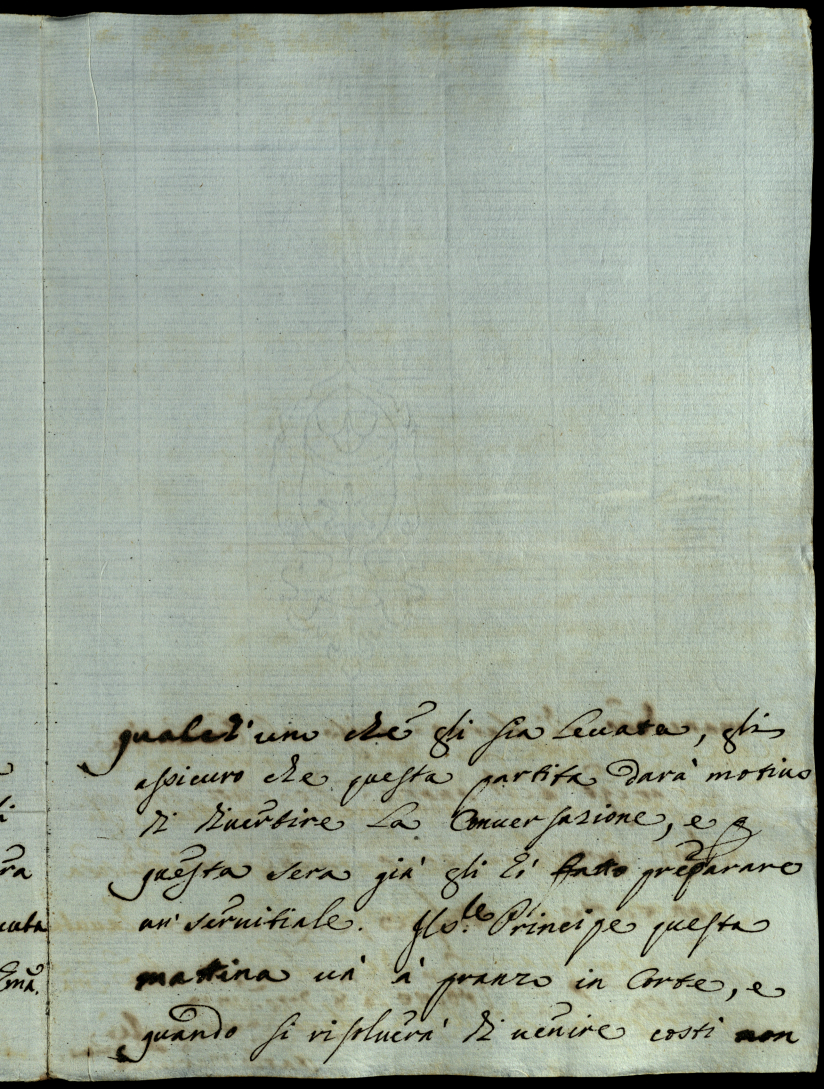 qualch'uno che gli sia Leuata, gli
assicuro che questa partita darà motiuo
di diuertire La Conuersazione, e p
questa sera già gli hò fatto preparare
un seruitiale. Principe questa
mattina và à pranzo in Corte, e
quando si risoluerà di uenire costi non
uata